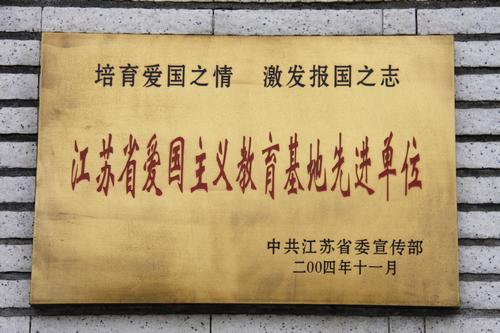 培育爱国之情 激发报国之志
江苏省爱国主义教育基地先进单位
中共江苏省委宣传部
二00四年十一月